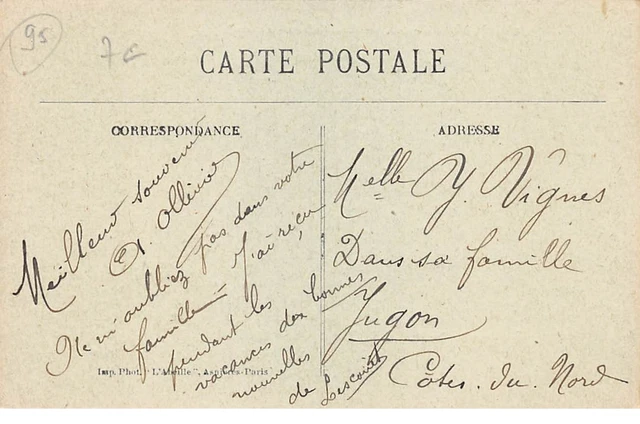 95
7c
CARTE POSTALE
CORRESPONDANCE
Meilleur souvenir
A. Ollivier
Ne m'oubliez pas dans votre
famille – J'ai reçu
pendant les
vacances des bonnes
nouvelles
de Lescouët
Imp. Phot. "L'Abeille", Asnières-Paris
ADRESSE
Melle Y. Vignes
Dans sa famille
Jugon
Côtes. du. Nord